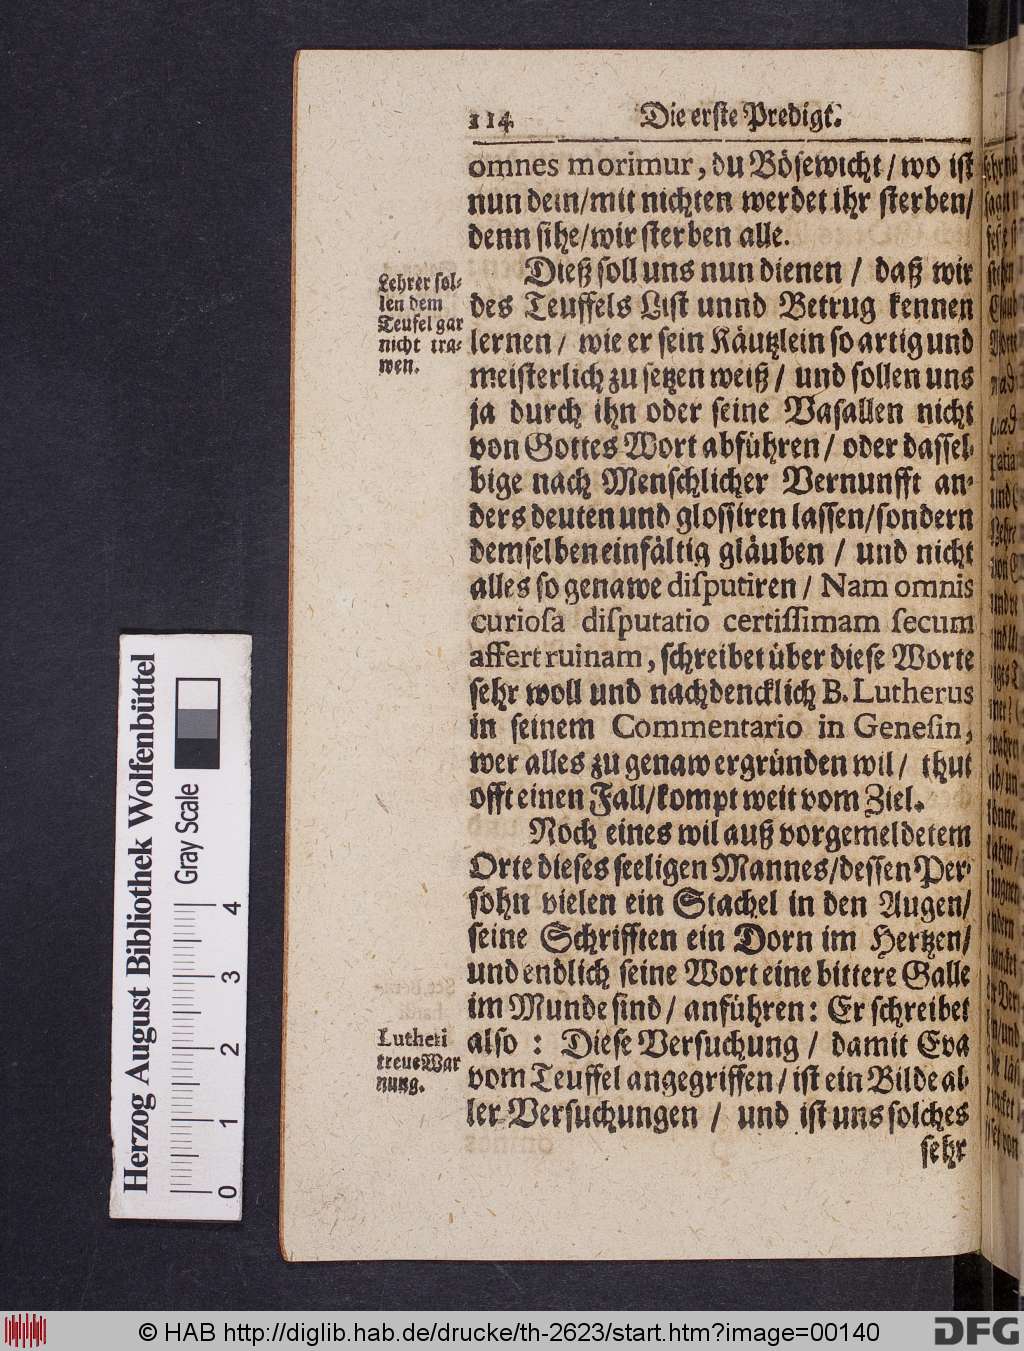 114 Die erste Predigt.
omnes morimur, du Bösewicht / wo ist
nun dein / mit nichten werdet ihr sterben /
denn sihe / wir sterben alle.
Dieß soll uns nun dienen / daß wir
des Teuffels List unnd Betrug kennen
lernen / wie er sein Käutzlein so artig und
meisterlich zu setzen weiß / und sollen uns
ja durch ihn oder seine Vasallen nicht
von Gottes Wort abführen / oder dassel-
bige nach Menschlicher Vernunfft an-
ders deuten und glossiren lassen / sondern
demselben einfältig gläuben / und nicht
alles so genawe disputiren / Nam omnis
curiosa disputatio certissimam secum
affert ruinam, schreibet über diese Worte
sehr woll und nachdencklich B. Lutherus
in seinem Commentario in Genesin,
wer alles zu genaw ergründen wil / thut
offt einen Fall / kompt weit vom Ziel.
Noch eines wil auß vorgemeldetem
Orte dieses seeligen Mannes / dessen Per-
sohn vielen ein Stachel in den Augen /
seine Schrifften ein Dorn im Hertzen /
und endlich seine Wort eine bittere Galle
im Munde sind / anführen: Er schreibet
also : Diese Versuchung / damit Eva
vom Teuffel angegriffen / ist ein Bilde al-
ler Versuchungen / und ist uns solches
sehr
Lehrer sol-
len dem
Teufel gar
nicht tra-
wen.
Lutheri
treue War
nung.
Herzog August Bibliothek Wolfenbüttel
Gray Scale
0 1 2 3 4
© HAB http://diglib.hab.de/drucke/th-2623/start.htm?image=00140
DFG